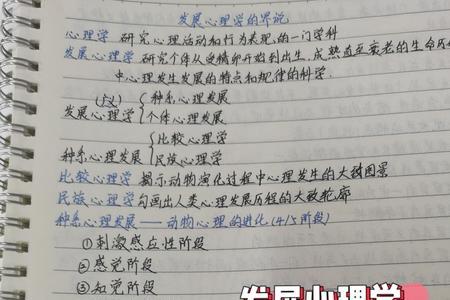 发展心理学的界说
心理学 研究心理活动和行为表现的一门学科
发展心理学 研究个体从受精卵开始到出生、成熟直至衰老的生命历
中心理发生发展的特点和规律的科学.
(广义)
发展心理学 { 种系心理发展
个体心理发展
种系心理发展 { 比较心理学
民族心理学
比较心理学 揭示动物演化过程中心理发生的大致图景
民族心理学 勾画出人类心理发展历程的大致轮廓
种系心理发展 —— 动物心理的进化(4/5阶段)
①刺激感应性阶段
②感觉阶段
③知觉阶段
发展心理学